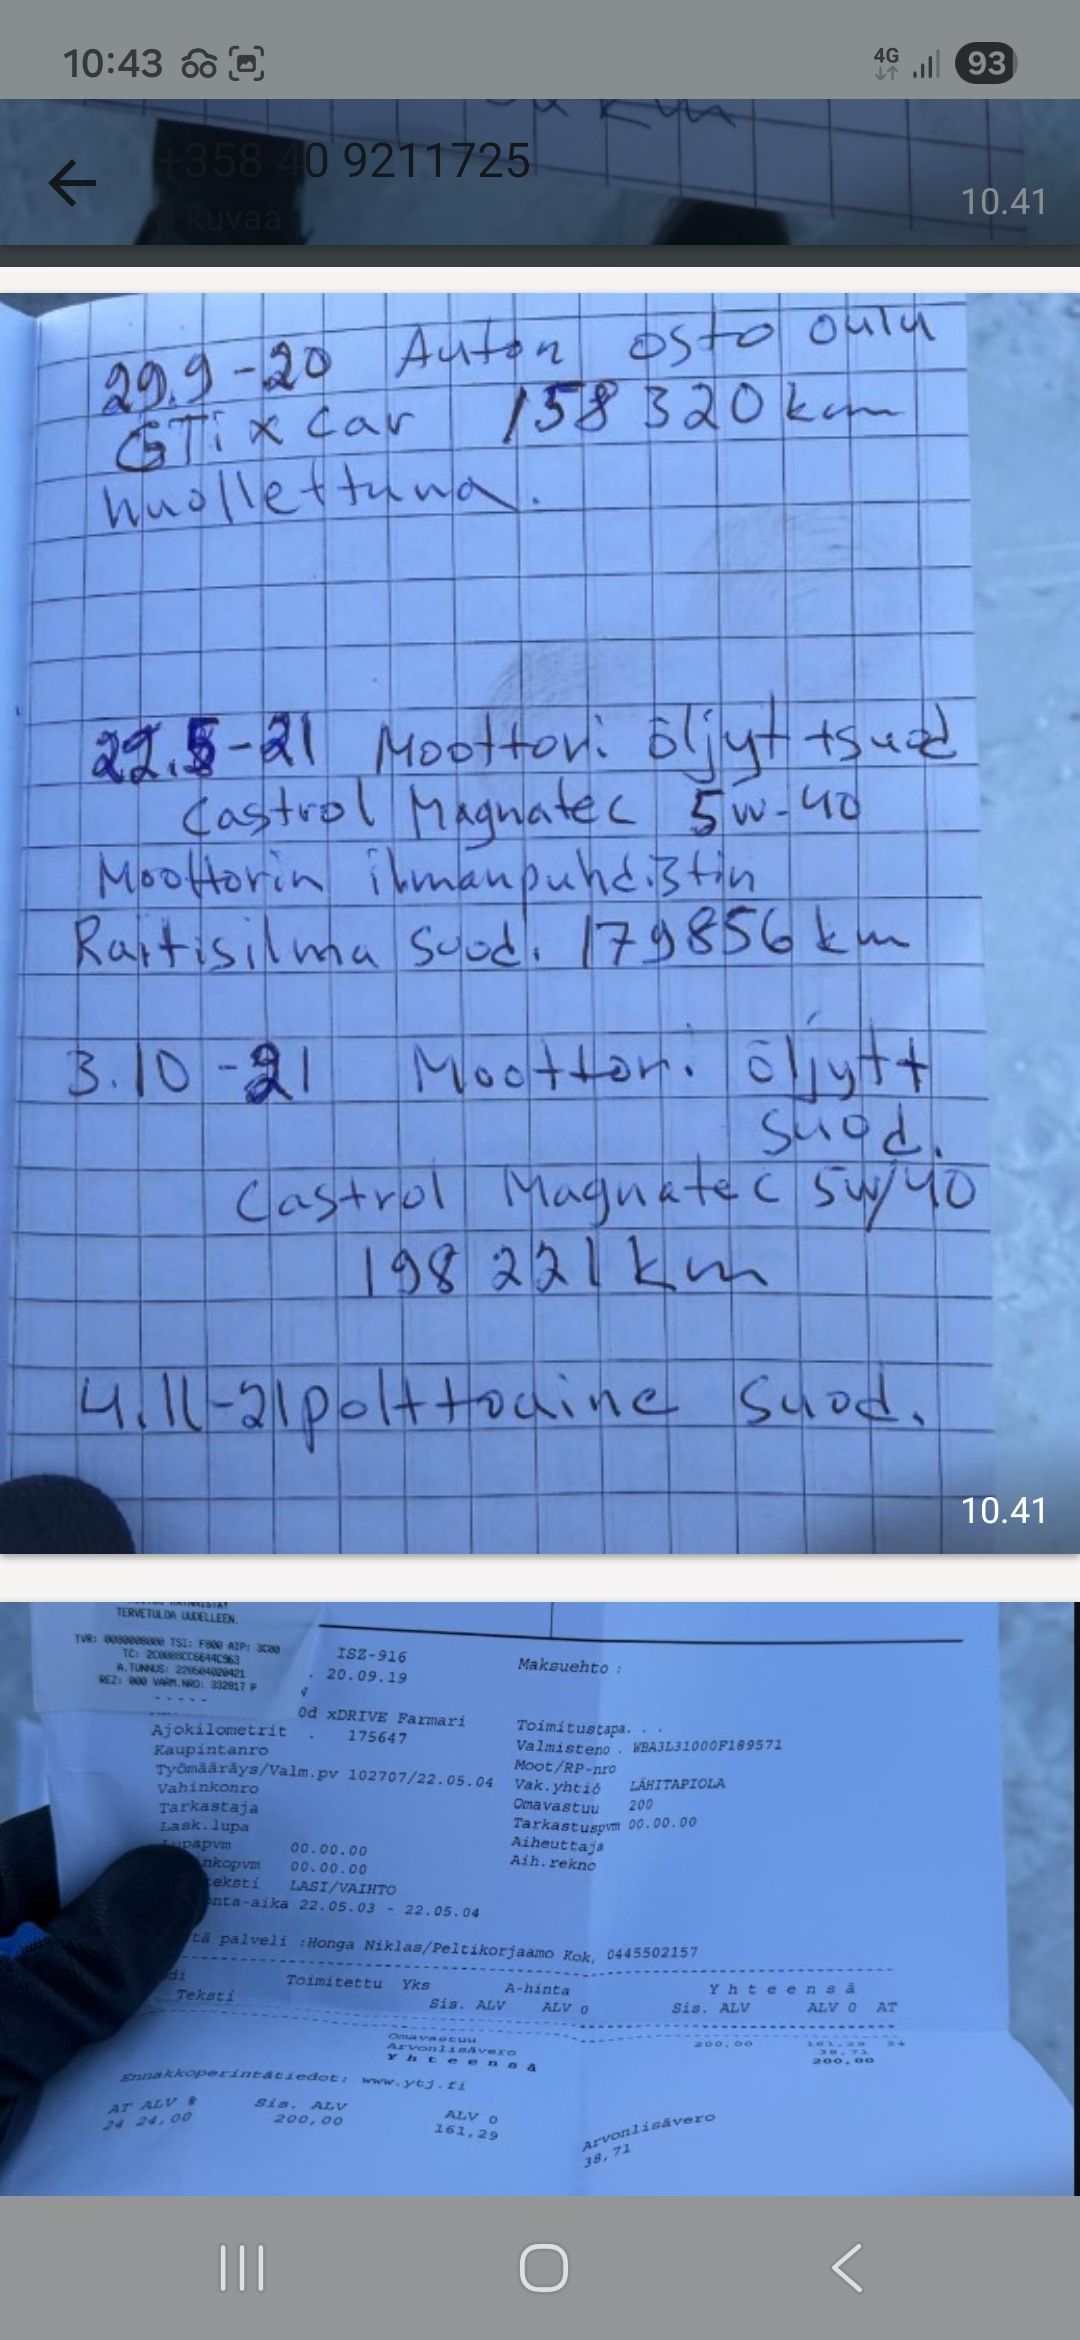 10:43
4G
93
+358 40 9211725
kuvaa
10.41
29.9-20 Auton osto oulu
GTi x Car 158 320 km
huollettuna.
22.5-21 Moottori öljyt+suod
Castrol Magnatec 5w-40
Moottorin ilmanpuhdistin
Raitisilma suod. 179856 km
3.10-21 Moottori öljyt+
suod.
Castrol Magnatec 5w/40
198 221 km
4.11-21 polttoaine suod.
10.41
TERVETULOA UUDELLEEN.
TVR: 0080008000 TSI: F800 AIP: 3C00
TC: 2C0088CC6644C963
A.TUNNUS: 220504020421
REZ: 000 VARM.NRO: 332817 P
- - - - -
ISZ-916
Maksuehto :
. 20.09.19
0d xDRIVE Farmari
Toimitustapa. . .
Ajokilometrit . 175647
Valmisteno . WBA3L31000F189571
Kaupintanro
Moot/RP-nro
Työmääräys/Valm.pv 102707/22.05.04
Vak.yhtiö LÄHITAPIOLA
Vahinkonro
Omavastuu 200
Tarkastaja
Tarkastuspvm 00.00.00
Lask.lupa
Aiheuttaja
upapvm 00.00.00
Aih.rekno
nkopvm 00.00.00
teksti LASI/VAIHTO
onta-aika 22.05.03 - 22.05.04
tä palveli :Honga Niklas/Peltikorjaamo Kok, 0445502157
di Toimitettu Yks A-hinta Y h t e e n s ä
Teksti Sis. ALV ALV 0 Sis. ALV ALV 0 AT
Omavastuu 200,00 161,29 24
Arvonlisävero 38,71
Y h t e e n s ä 200,00
Ennakkoperintätiedot: www.ytj.fi
AT ALV % Sis. ALV ALV 0 Arvonlisävero
24 24,00 200,00 161,29 38,71